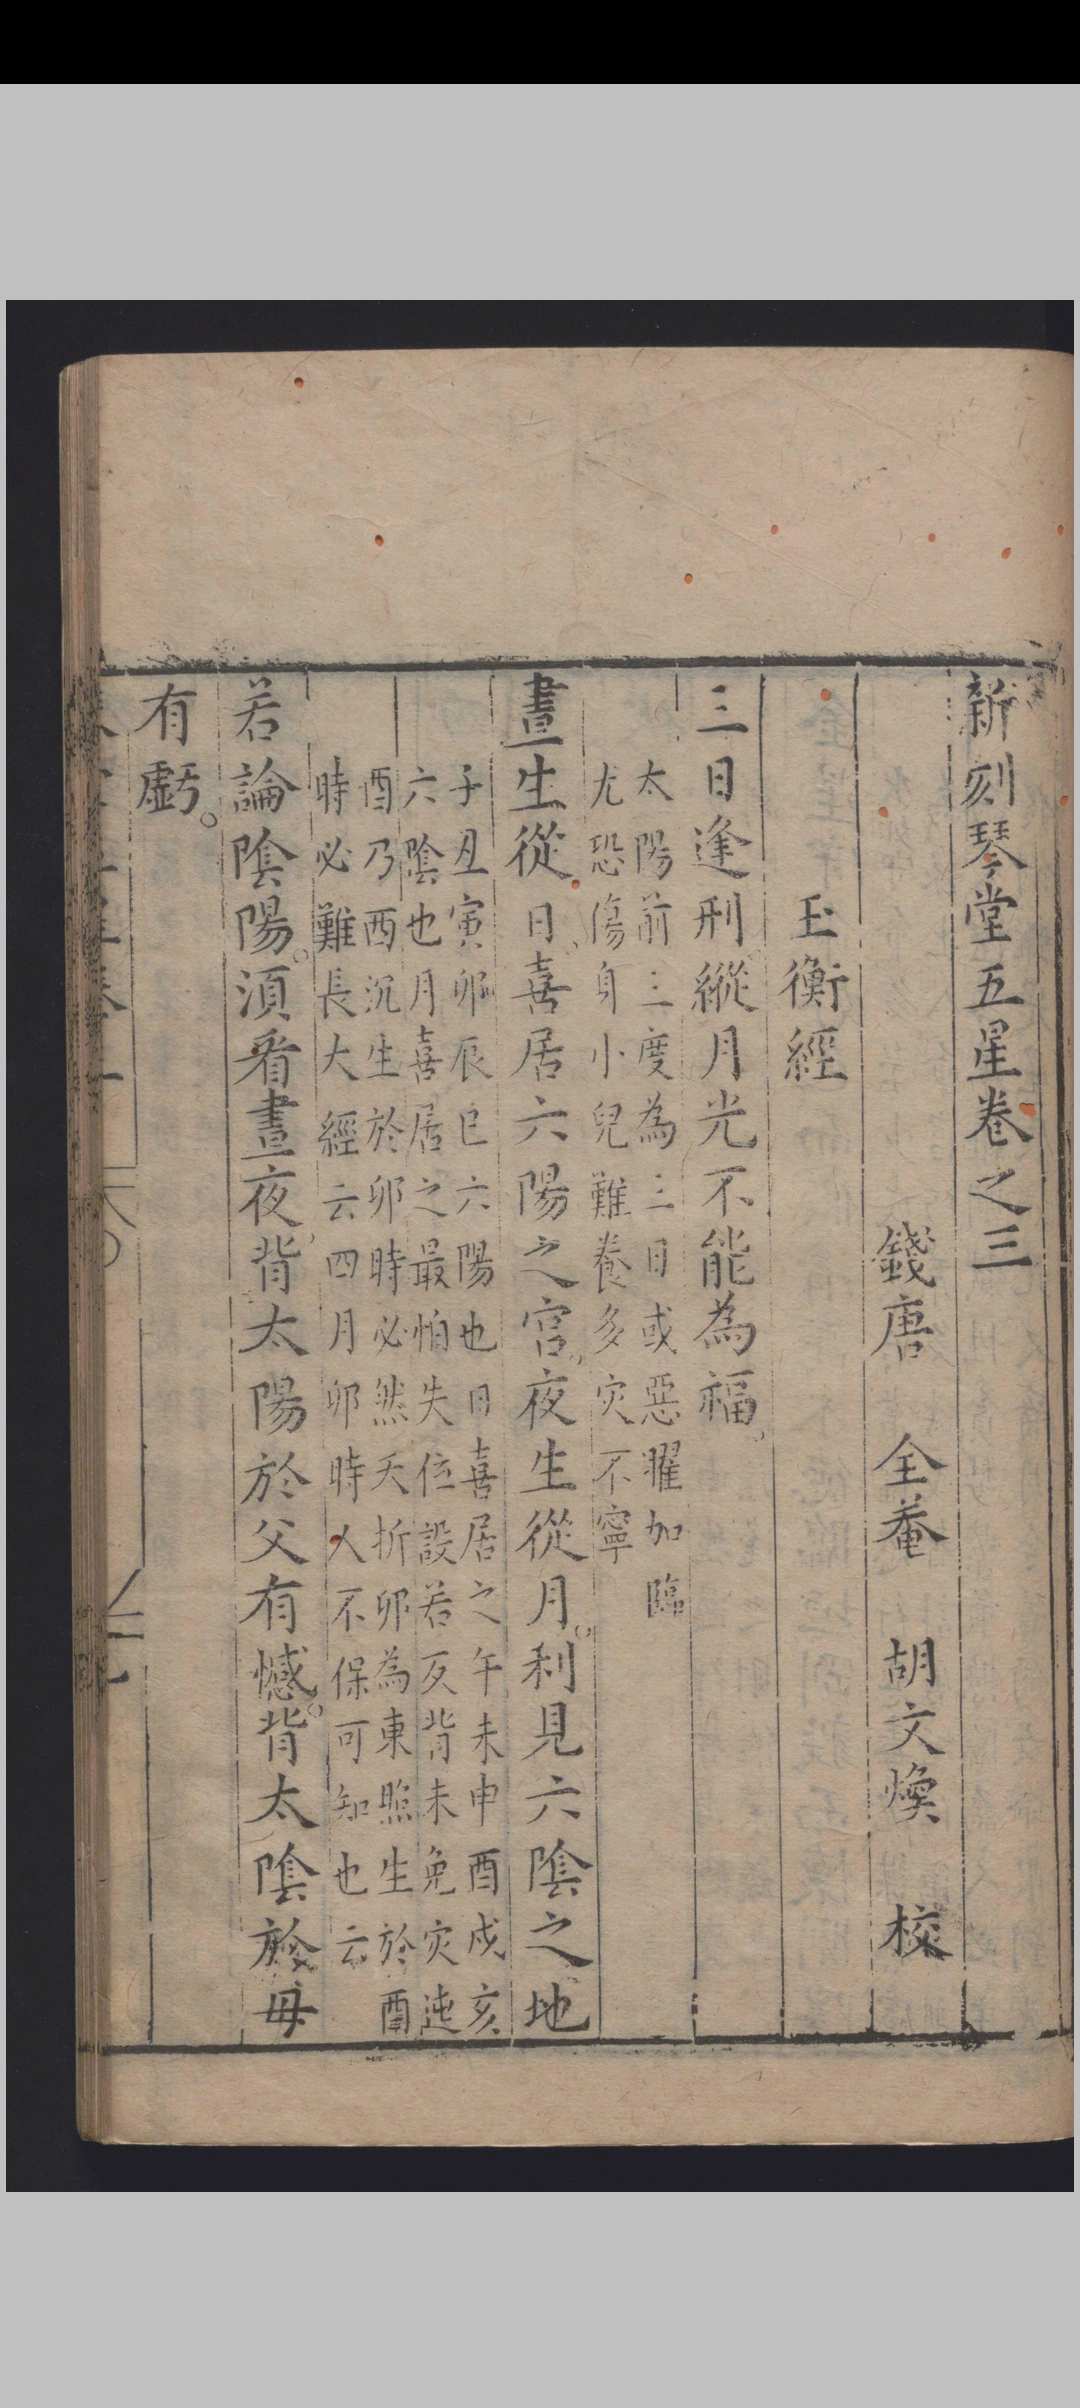 新刻琴堂五星卷之三
錢唐 全菴 胡文煥 校
玉衡經
三日逢刑縱月光不能為福
太陽前三度為三日或惡曜加臨
尤恐傷身小兒難養多灾不寧
晝生從日喜居六陽之宮夜生從月利見六陰之地
子丑寅卯辰巳六陽也日喜居之午未申酉戌亥
六陰也月喜居之最怕失位設若反背未免灾迍
酉乃西沉生於卯時必然夭折卯為東照生於酉
時必難長大經云四月卯時人不保可知也云
若論陰陽須看晝夜背太陽於父有憾背太陰於母
有虧